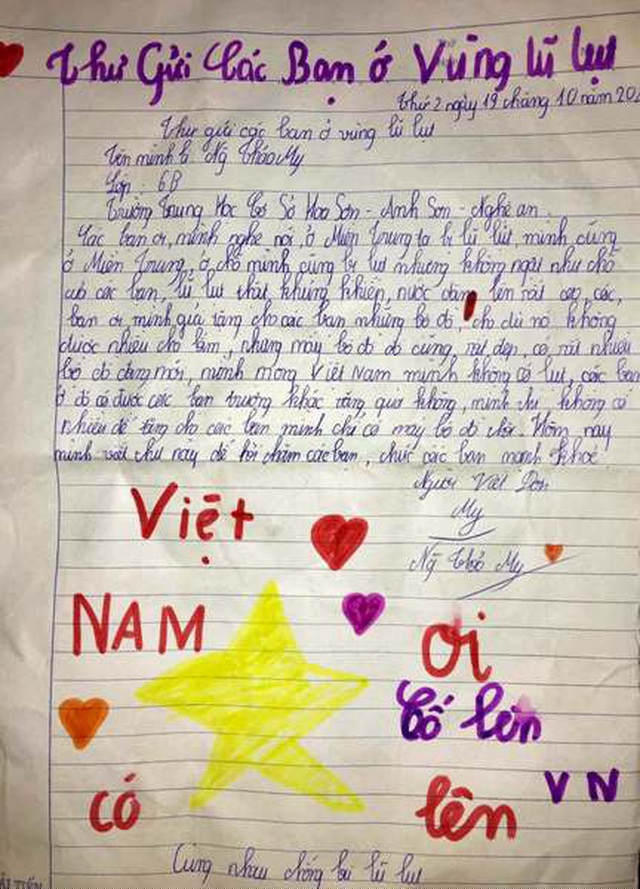 Thư Gửi Các Bạn ở Vùng lũ lụt
Thứ 2 ngày 19 tháng 10 năm 20
Thư gửi các bạn ở vùng lũ lụt
Tên mình là Ng Thảo My
Lớp: 6B
Trường Trung Học Cơ Sở Hoa Sơn - Anh Sơn - Nghệ an.
Các bạn ơi, mình nghe nói, ở Miền Trung ta bị lũ lụt, mình cũng
ở Miền Trung, ở chỗ mình cũng bị lụt nhưng không ngật như chỗ
các bạn, lũ lụt thật khủng khiếp, nước dâng lên rất cao, các,
bạn ơi mình gửi tặng cho các bạn những bộ đồ, cho dù nó không
được nhiều cho lắm, nhưng mấy bộ đồ đó cũng rất đẹp, có rất nhiều
bộ đồ đang mới, mình mong Việt Nam mình không có lụt, các bạn
ở đó có được các bạn trường khác tặng quà không, mình chỉ không có
nhiều để tặng cho các bạn mình chỉ có mấy bộ đồ thôi. Hôm nay
mình viết thư này để hỏi thăm các bạn, chúc các bạn mạnh khoẻ
Người Viết Đơn
My
Ng Thảo My
Việt
NAM
ơi
Cố lên
VN
có
lên
Cùng nhau chống lũ lụt